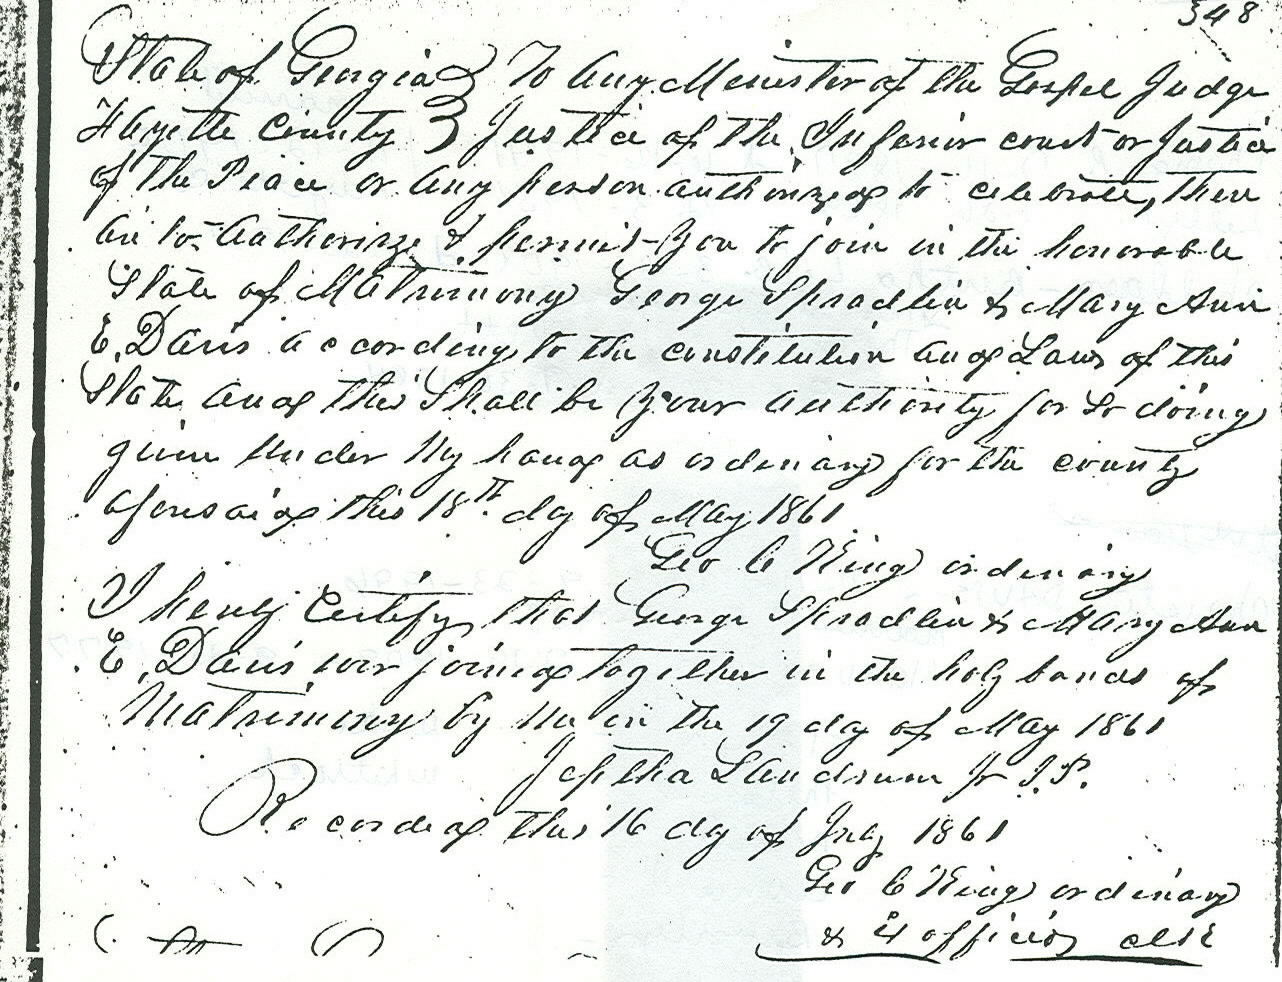 348
State of Georgia } To any Minister of the Gospel Judge
Fayette County } Justice of the Inferior court or Justice
of the Peace or any person authorized to celebrate, these
are to authorize & permit you to join in the honorable
State of Matrimony George Spradlin & Mary Ann
E. Davis according to the constitution and Laws of this
State and this Shall be your authority for So doing
given under My hand as ordinary for the county
aforesaid this 18th day of May 1861
Geo C King ordinary
I hereby certify that George Spradlin & Mary Ann
E. Davis wer joined together in the holy bands of
Matrimony by me in the 19 day of May 1861
Jeptha Landrum Jr J.P.
Recorded this 16 day of July 1861
Geo C King ordinary
& Ex officio clk